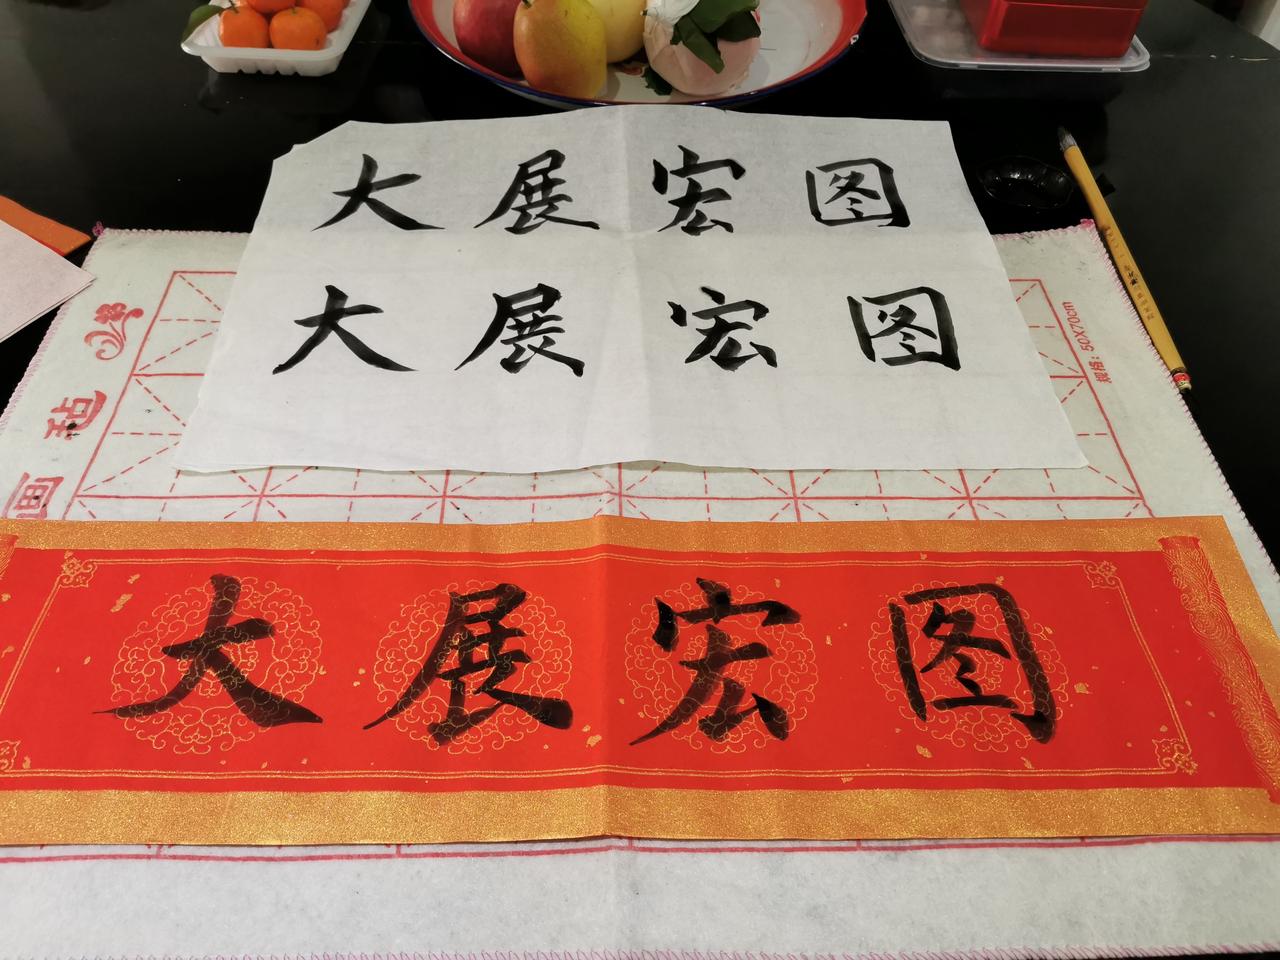 大展宏图
大展宏图
大展宏图
画毡
规格：50X70cm